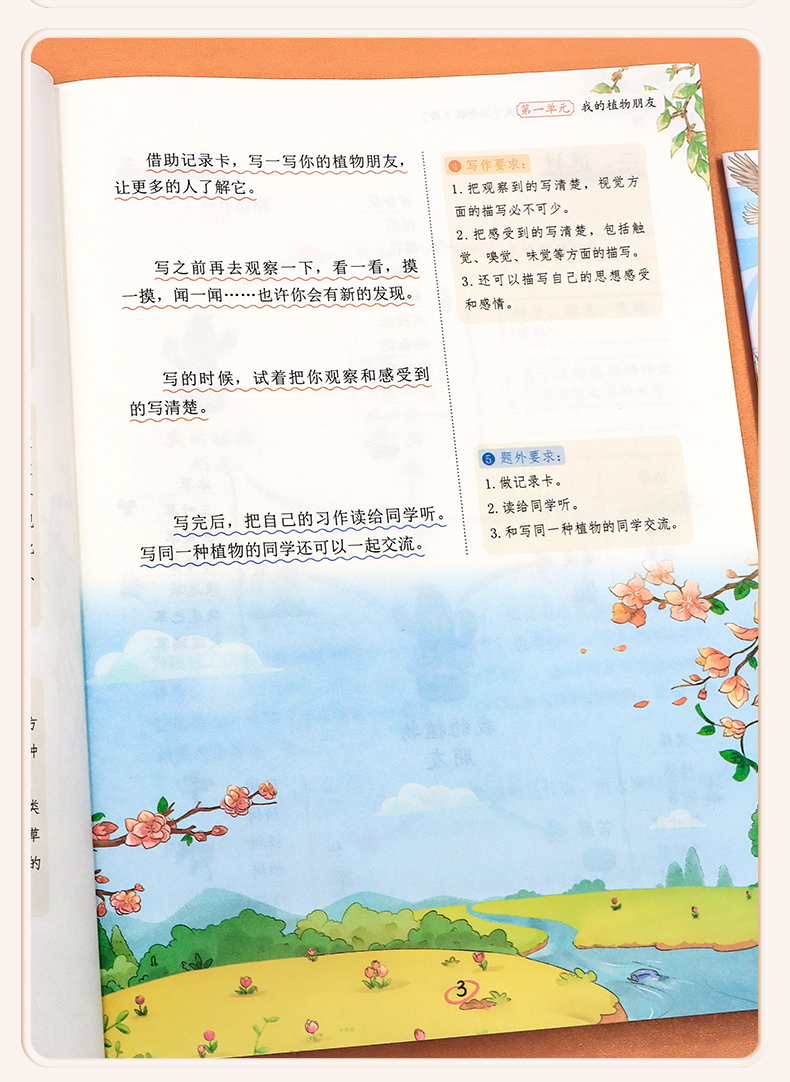 第一单元 我的植物朋友
借助记录卡，写一写你的植物朋友，
让更多的人了解它。
写之前再去观察一下，看一看，摸
一摸，闻一闻……也许你会有新的发现。
写的时候，试着把你观察和感受到
的写清楚。
写完后，把自己的习作读给同学听。
写同一种植物的同学还可以一起交流。
4 写作要求：
1. 把观察到的写清楚，视觉方
面的描写必不可少。
2. 把感受到的写清楚，包括触
觉、嗅觉、味觉等方面的描写。
3. 还可以描写自己的思想感受
和感情。
5 题外要求：
1. 做记录卡。
2. 读给同学听。
3. 和写同一种植物的同学交流。
种
类
草
的
3